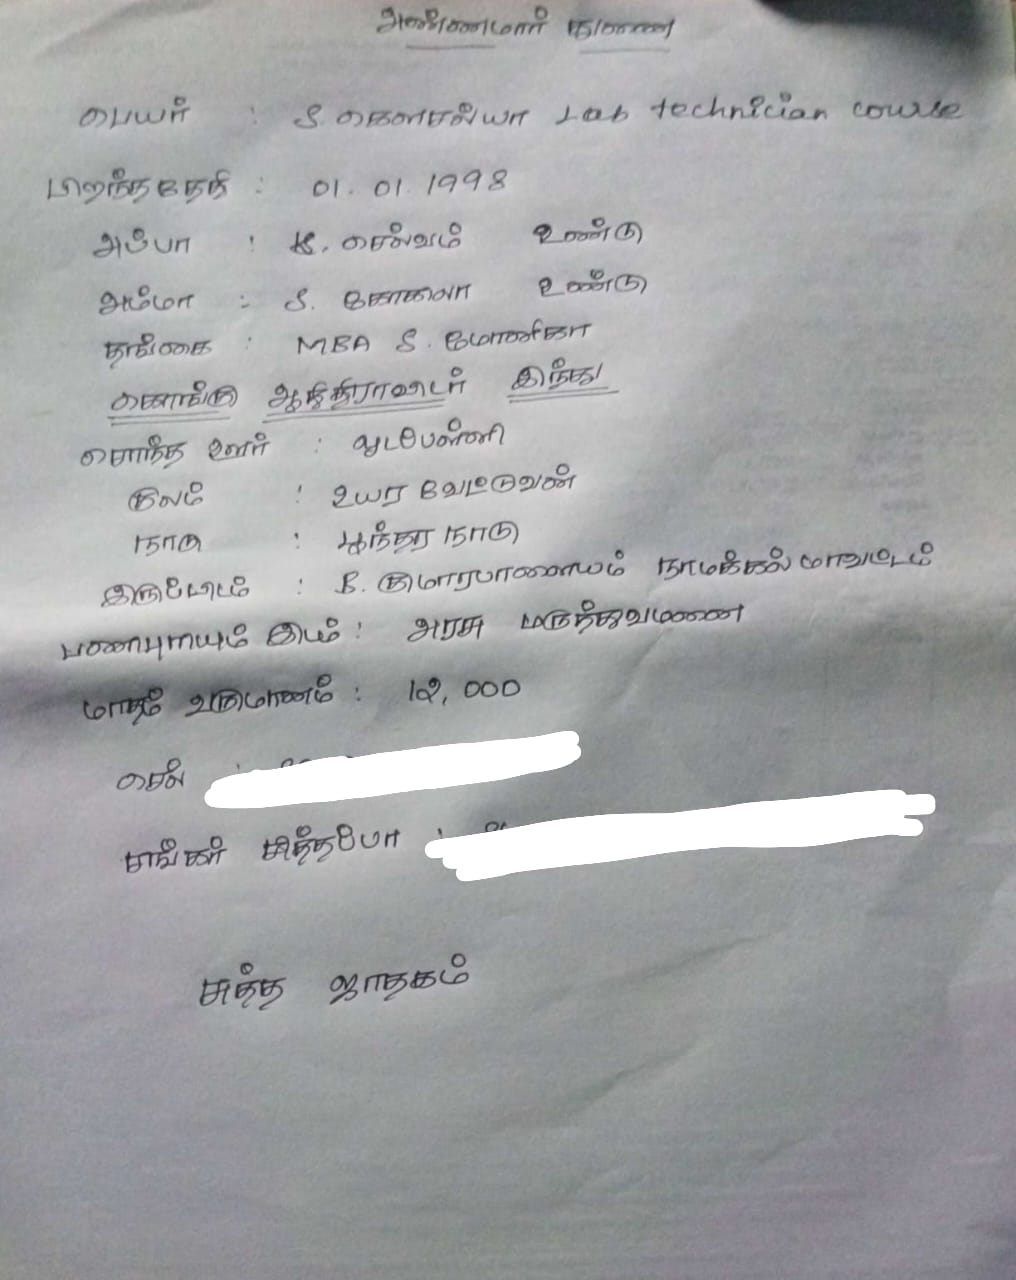 அண்ணமார் துணை
பெயர் : S. கௌசல்யா Lab technician course
பிறந்ததேதி : 01. 01. 1998
அப்பா : K. செல்வம் உண்டு
அம்மா : S. கோகிலா உண்டு
தங்கை : MBA S. மோனிகா
கொங்கு ஆதிதிராவிடர் இந்து
சொந்த ஊர் : ஆடபேள்ளி
குலம் : உயர வேட்டுவன்
நாடு : பூந்துர நாடு
இருப்பிடம் : B. குமாரபாளையம் நாமக்கல் மாவட்டம்
பணிபுரியும் இடம் : அரசு மருத்துவமணை
மாதம் வருமாணம் : 12,000
செல்
எங்கள் சித்தப்பா :
சுத்த ஜாதகம்